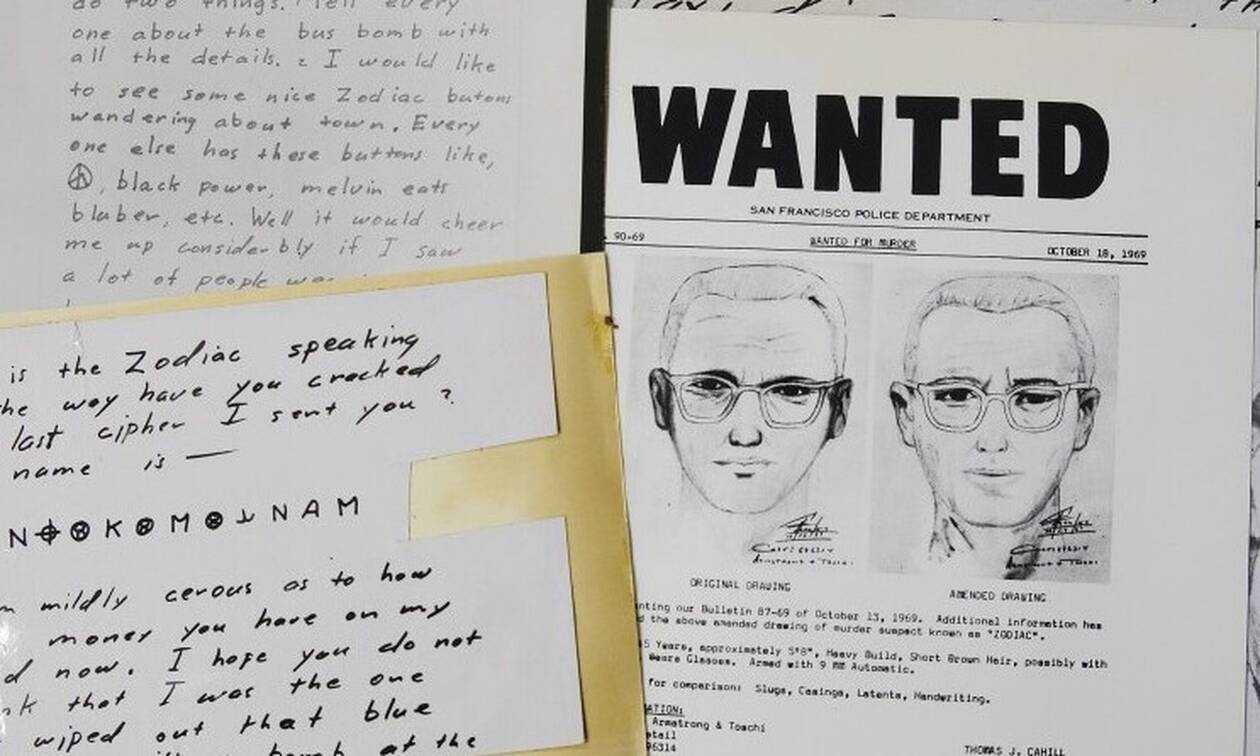 do two things. Tell every
one about the bus bomb with
all the details. I would like
to see some nice Zodiac butons
wandering about town. Every
one else has these buttons like,
, black power, melvin eats
bluber, etc. Well it would cheer
me up considerbly if I saw
a lot of people
is the Zodiac speaking
the way have you cracked
last cipher I sent you ?
name is —
mildly cerous as to how
money you have on my
now. I hope you do not
that I was the one
wiped out that blue
bomb at the
WANTED
SAN FRANCISCO POLICE DEPARTMENT
90-69 WANTED FOR MURDER OCTOBER 18, 1969
ORIGINAL DRAWING AMENDED DRAWING
our Bulletin 87-69 of October 13, 1969. Additional information has
the above amended drawing of murder suspect known as "ZODIAC".
Years, approximately 5'8", Heavy Build, Short Brown Hair, possibly with
Wears Glasses. Armed with 9 MM Automatic.
for comparison: Slugs, Casings, Latents, Handwriting.
Armstrong & Toschi
THOMAS J. CAHILL